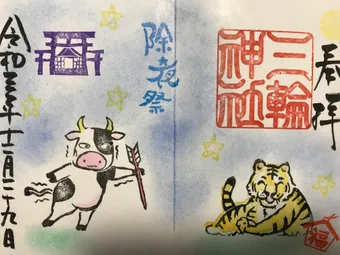 奉拝
三輪
神社
福
除夜祭
令和三年十二月二十九日